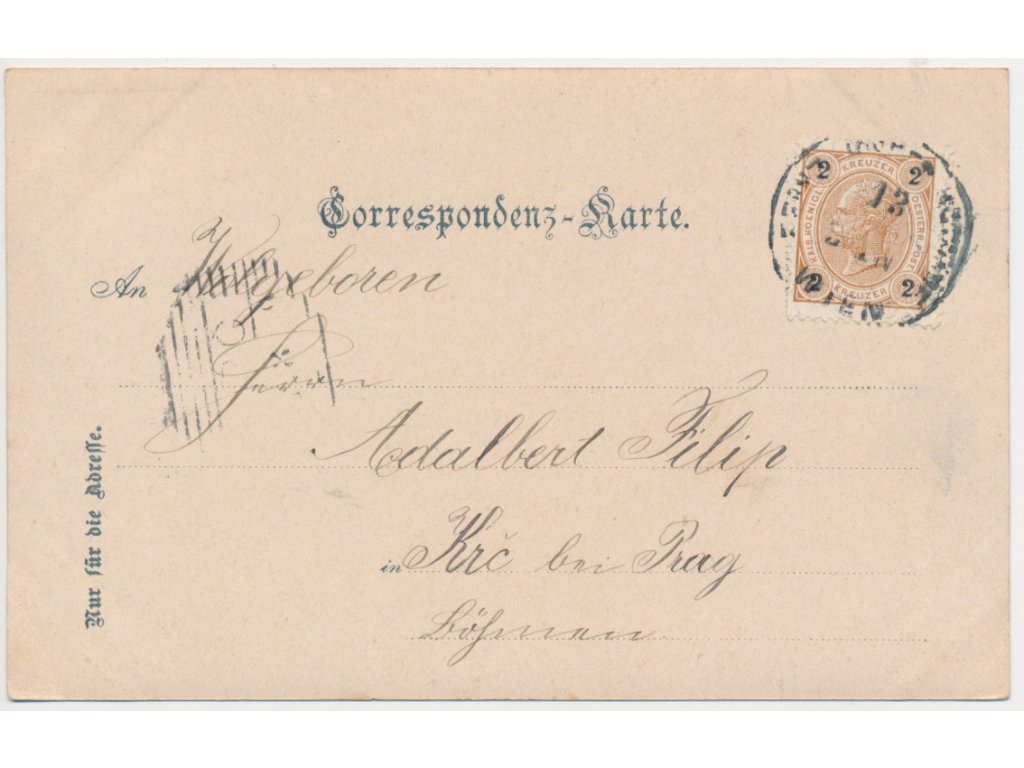 Correspondenz-Karte.
2 KREUZER 2
KAIS. KOENIGL. OESTERR. POST
2 KREUZER 2
13
WIEN
An Wolgeboren
Herrn
Adalbert Filip
in Krč bei Prag
Böhmen
Nur für die Adresse.